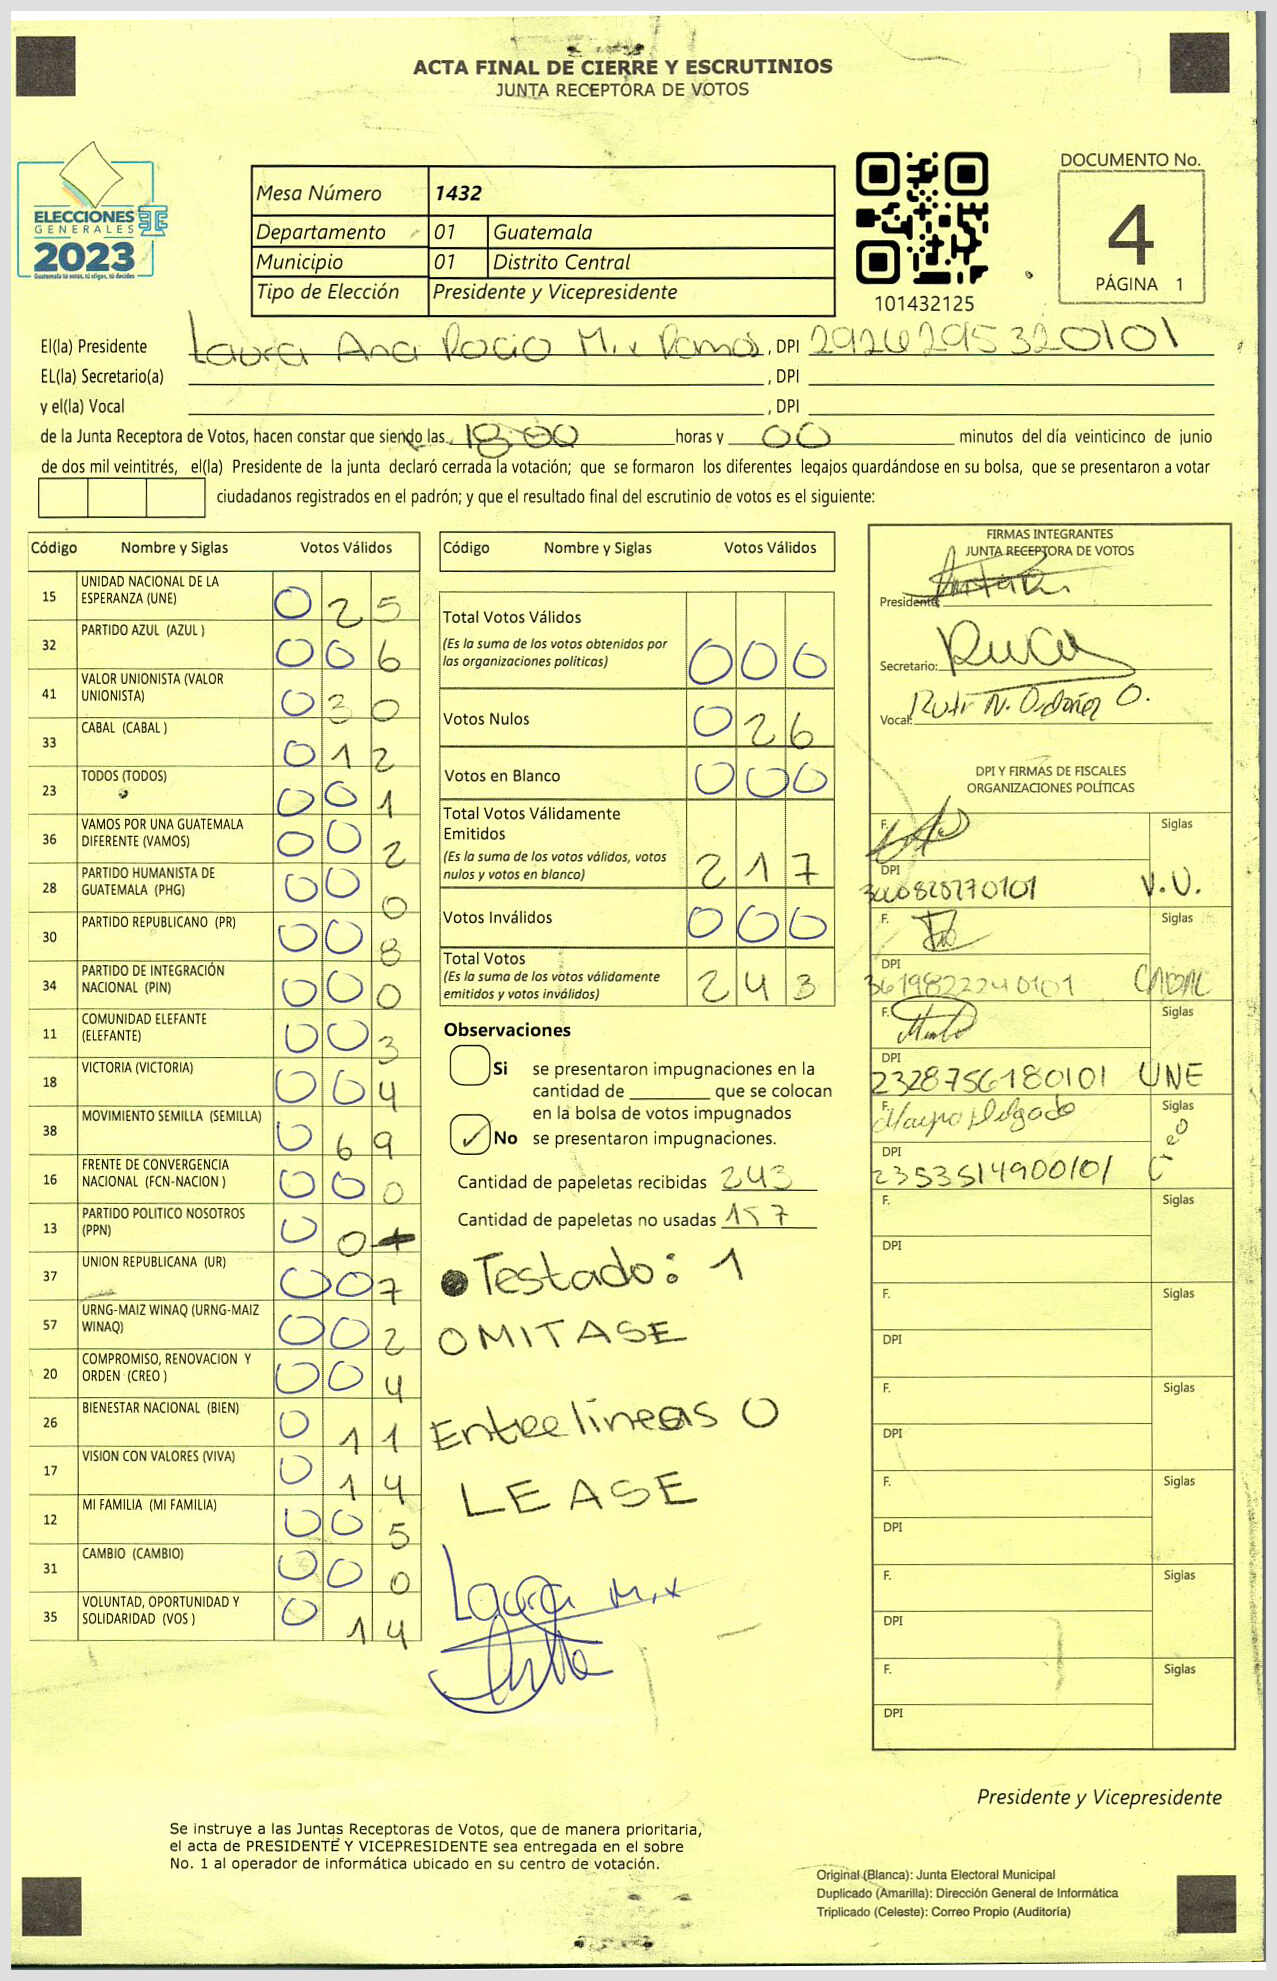 ACTA FINAL DE CIERRE Y ESCRUTINIOS
JUNTA RECEPTORA DE VOTOS
ELECCIONES
GENERALES
2023
Guatemala tú votas, tú eliges, tú decides
Mesa Número 1432
Departamento 01 Guatemala
Municipio 01 Distrito Central
Tipo de Elección Presidente y Vicepresidente
101432125
DOCUMENTO No.
4
PÁGINA 1
El(la) Presidente Laura Ana Rocio Mix Ramos, DPI 2926295320101
EL(la) Secretario(a) , DPI
y el(la) Vocal , DPI
de la Junta Receptora de Votos, hacen constar que siendo las 18:00 horas y 00 minutos del día veinticinco de junio
de dos mil veintitrés, el(la) Presidente de la junta declaró cerrada la votación; que se formaron los diferentes legajos guardándose en su bolsa, que se presentaron a votar
ciudadanos registrados en el padrón; y que el resultado final del escrutinio de votos es el siguiente:
Código Nombre y Siglas Votos Válidos
15 UNIDAD NACIONAL DE LA
ESPERANZA (UNE) 0 2 5
32 PARTIDO AZUL (AZUL ) 0 0 6
41 VALOR UNIONISTA (VALOR
UNIONISTA) 0 3 0
33 CABAL (CABAL ) 0 1 2
23 TODOS (TODOS) 0 0 1
36 VAMOS POR UNA GUATEMALA
DIFERENTE (VAMOS) 0 0 2
28 PARTIDO HUMANISTA DE
GUATEMALA (PHG) 0 0 0
30 PARTIDO REPUBLICANO (PR) 0 0 8
34 PARTIDO DE INTEGRACIÓN
NACIONAL (PIN) 0 0 0
11 COMUNIDAD ELEFANTE
(ELEFANTE) 0 0 3
18 VICTORIA (VICTORIA) 0 0 4
38 MOVIMIENTO SEMILLA (SEMILLA) 0 6 9
16 FRENTE DE CONVERGENCIA
NACIONAL (FCN-NACION ) 0 0 0
13 PARTIDO POLITICO NOSOTROS
(PPN) 0 0
37 UNION REPUBLICANA (UR) 0 0 7
57 URNG-MAIZ WINAQ (URNG-MAIZ
WINAQ) 0 0 2
20 COMPROMISO, RENOVACION Y
ORDEN (CREO ) 0 0 4
26 BIENESTAR NACIONAL (BIEN) 0 1 1
17 VISION CON VALORES (VIVA) 0 1 4
12 MI FAMILIA (MI FAMILIA) 0 0 5
31 CAMBIO (CAMBIO) 0 0 0
35 VOLUNTAD, OPORTUNIDAD Y
SOLIDARIDAD (VOS ) 0 1 4
Código Nombre y Siglas Votos Válidos
Total Votos Válidos
(Es la suma de los votos obtenidos por
las organizaciones políticas) 0 0 0
Votos Nulos 0 2 6
Votos en Blanco 0 0 0
Total Votos Válidamente
Emitidos
(Es la suma de los votos válidos, votos
nulos y votos en blanco) 2 1 7
Votos Inválidos 0 0 0
Total Votos
(Es la suma de los votos válidamente
emitidos y votos inválidos) 2 4 3
Observaciones
Si se presentaron impugnaciones en la
cantidad de ________ que se colocan
en la bolsa de votos impugnados
✓ No se presentaron impugnaciones.
Cantidad de papeletas recibidas 243
Cantidad de papeletas no usadas 157
Testado: 1
OMITASE
Entrelineas 0
LEASE
Laura Mix
FIRMAS INTEGRANTES
JUNTA RECEPTORA DE VOTOS
Presidente:
Secretario:
Vocal: Ruth N. Ordoñez O.
DPI Y FIRMAS DE FISCALES
ORGANIZACIONES POLÍTICAS
F. Siglas
DPI V.U.
F. Siglas
DPI 3619822240101 CABAL
F. Siglas
DPI 2328756180101 UNE
F. Delgado Siglas
DPI 2353514900101 Creo
F. Siglas
DPI
F. Siglas
DPI
F. Siglas
DPI
F. Siglas
DPI
F. Siglas
DPI
F. Siglas
DPI
Presidente y Vicepresidente
Se instruye a las Juntas Receptoras de Votos, que de manera prioritaria,
el acta de PRESIDENTE Y VICEPRESIDENTE sea entregada en el sobre
No. 1 al operador de informática ubicado en su centro de votación.
Original (Blanca): Junta Electoral Municipal
Duplicado (Amarilla): Dirección General de Informática
Triplicado (Celeste): Correo Propio (Auditoría)